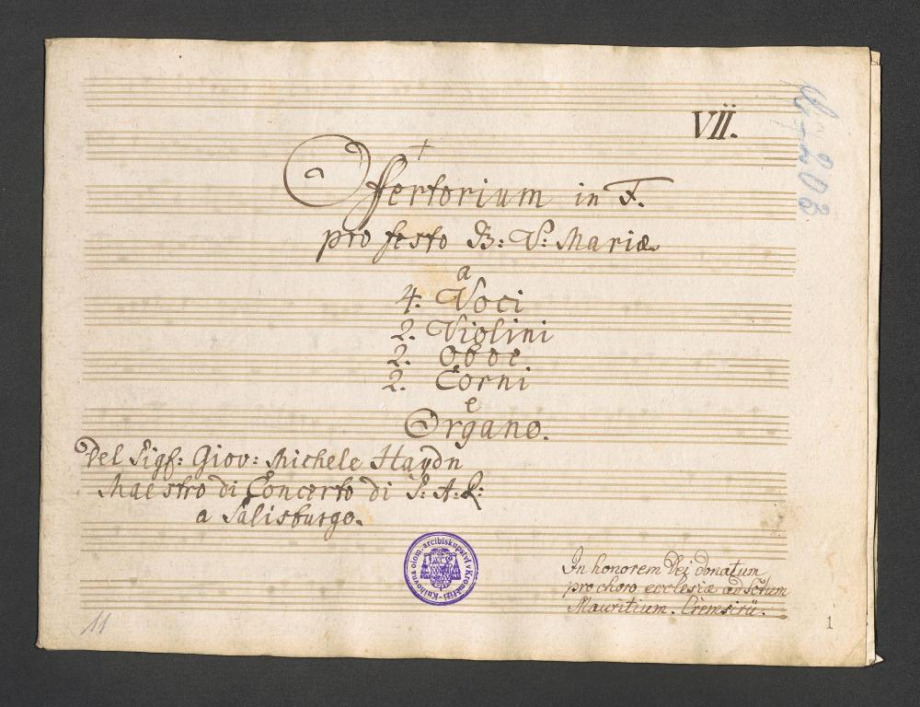 VII.
Offertorium in F.
pro festo B: V: Mariæ
a
4. Voci
2. Violini
2. Oboe
2. Corni
e
Organo.
Del Sigr: Giov: Michele Haydn
Maestro di Concerto di S: A: R:
a Salisburgo.
In honorem Dei donatum
pro choro ecclesiæ ad Sctum
Mauritium. Cremsirii.
Knihovna olom. arcibiskupství v Kroměříži
208
11
1